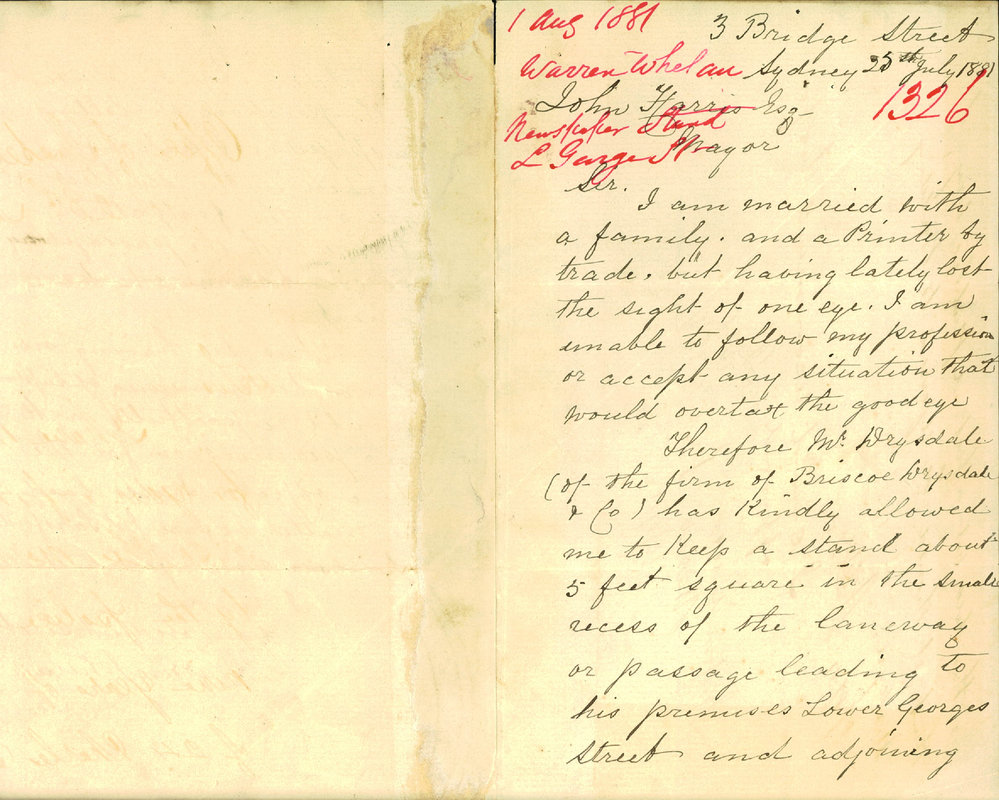 1 Aug 1881
3 Bridge Street
Warren Whelan
Sydney 25th July 1881
1326
John Harris Esq
Newspaper Stand
Mayor
L George St
Sir.
I am married with
a family. and a Printer by
trade. but having lately lost
the sight of one eye. I am
unable to follow my profession
or accept any situation that
would overtax the good eye
Therefore Mr. Drysdale
(of the firm of Briscoe Drysdale
& Co) has Kindly allowed
me to Keep a stand about
5 feet square in the small
recess of the laneway
or passage leading to
his premises Lower Georges
Street and adjoining